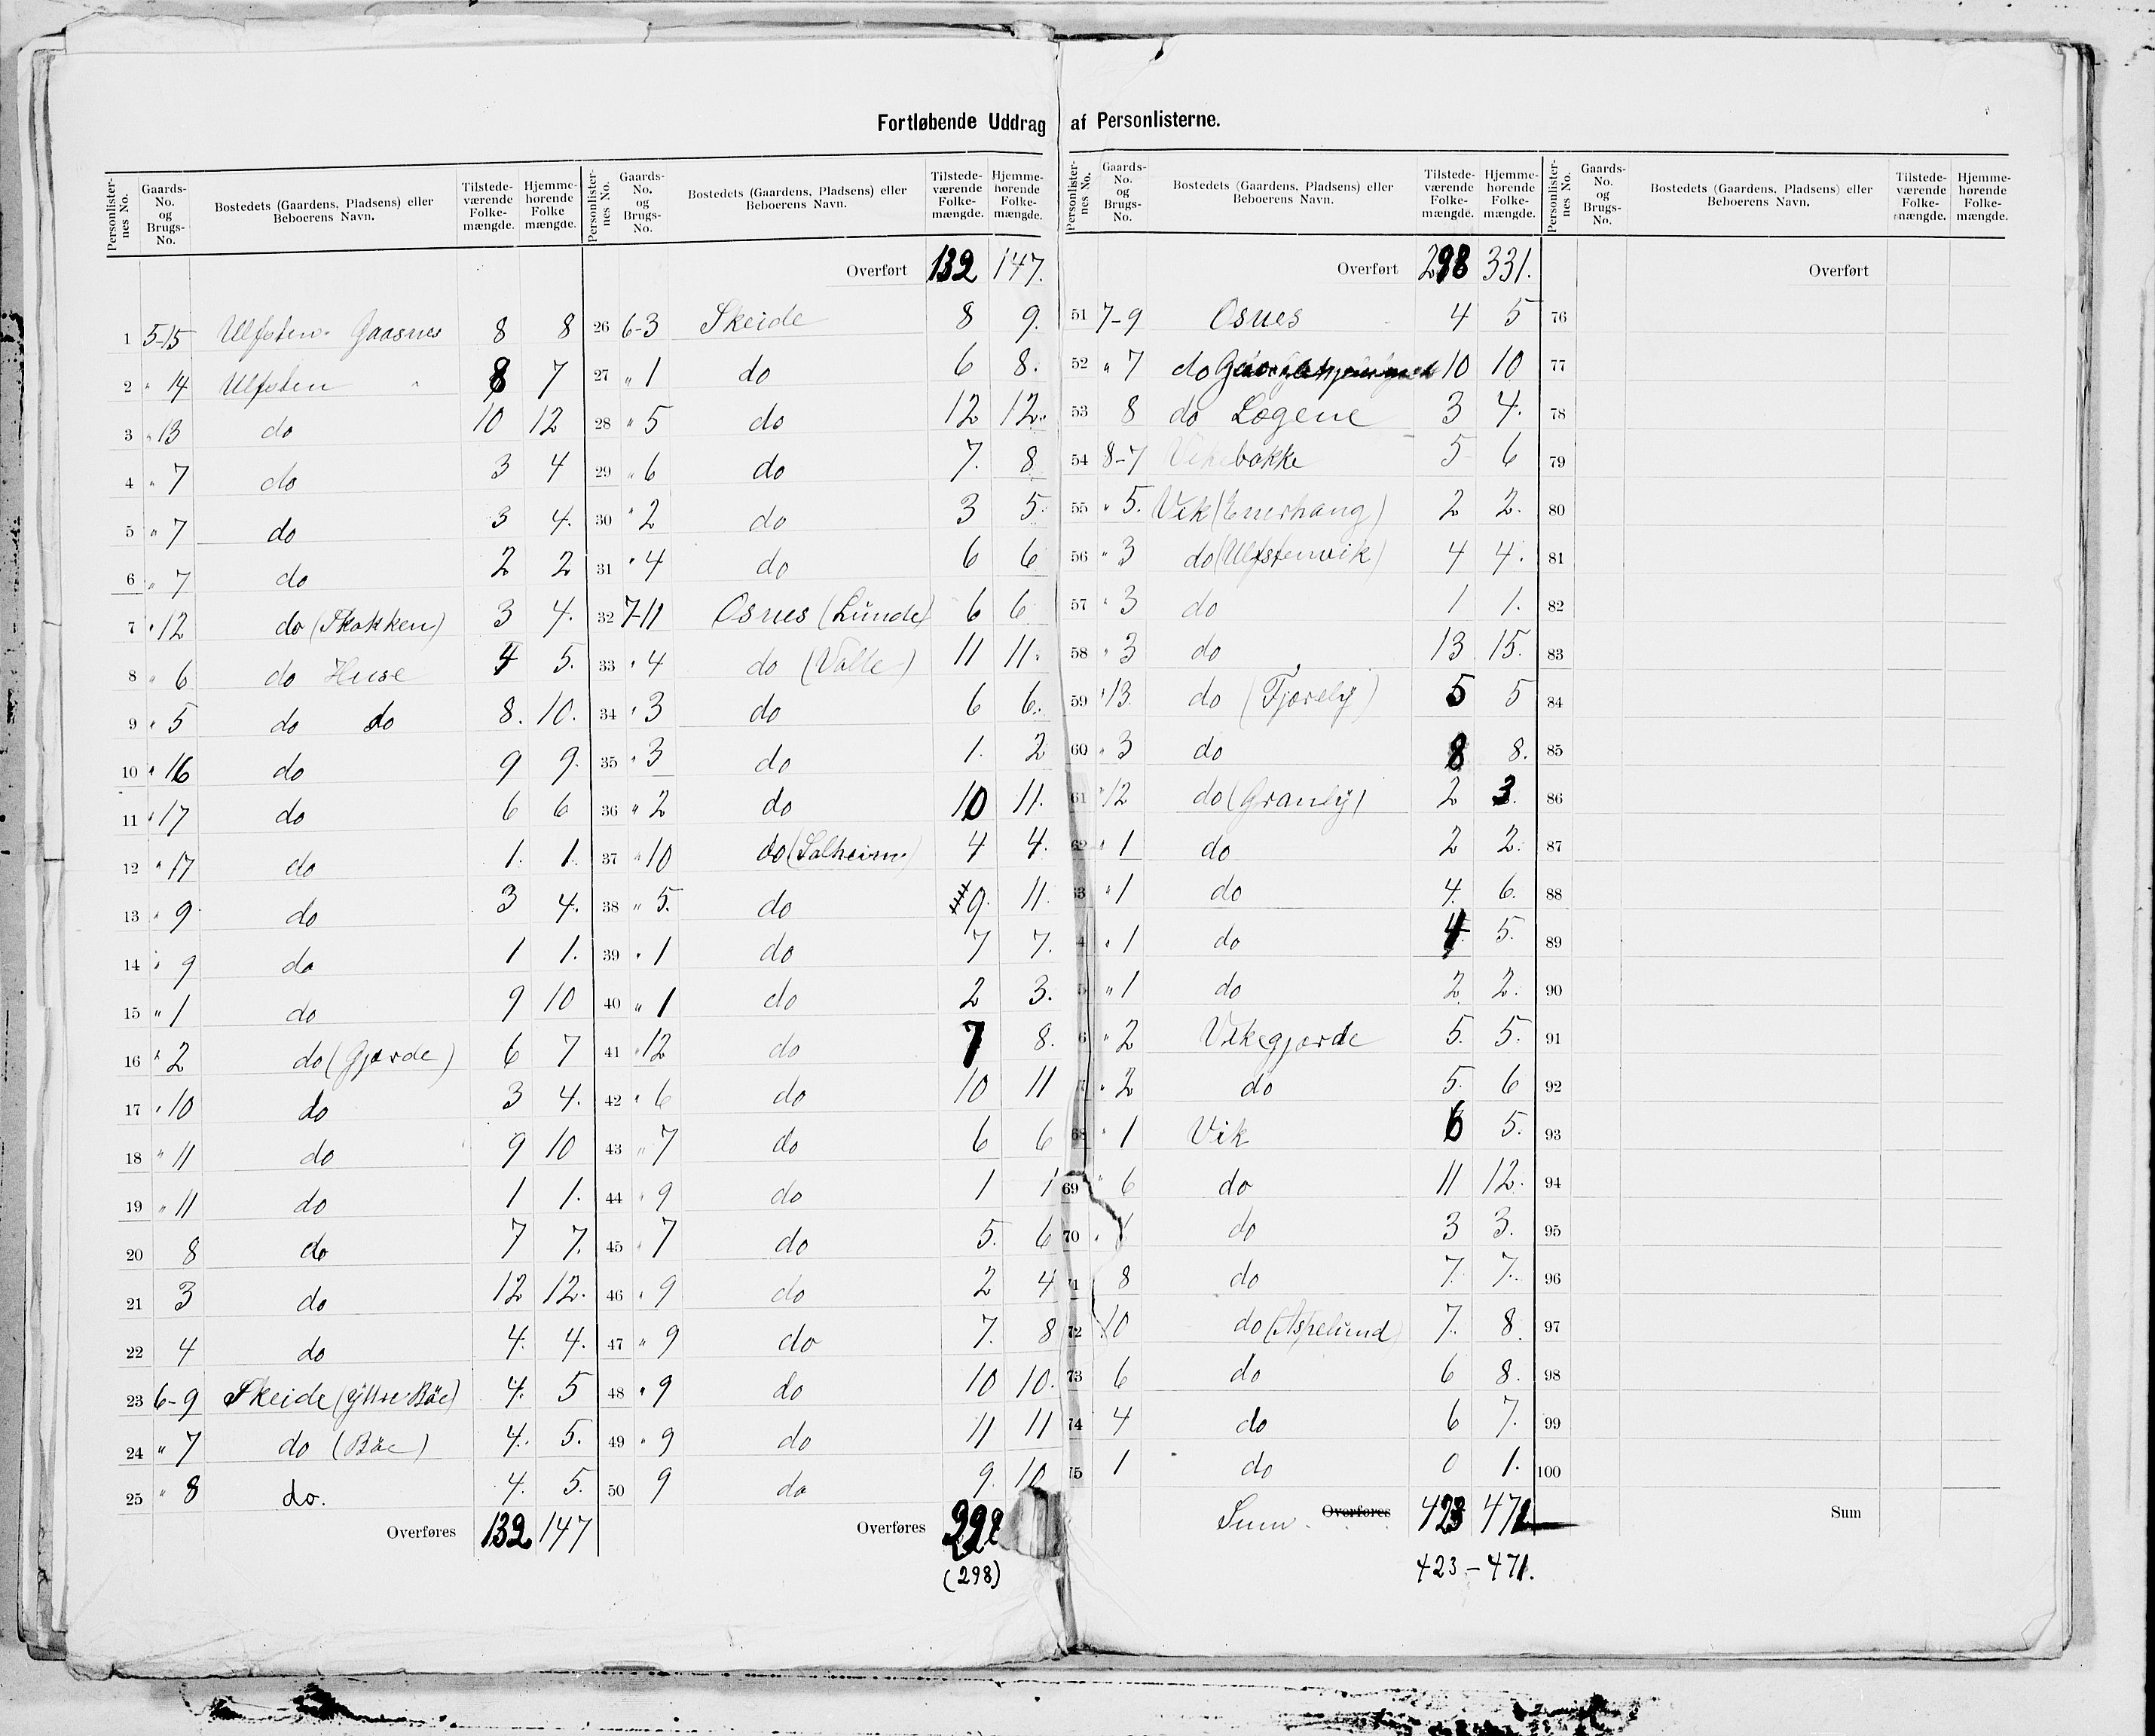 Fortløbende Uddrag af Personlisterne.
Personlister-nes No. Gaards-No. og Brugs-No. Bostedets (Gaardens, Pladsens) eller Beboerens Navn. Tilstede-værende Folke-mængde. Hjemme-hørende Folke mængde.
1 5-15 Ulfsten Gaasnes 8 8
2 " 14 Ulfsten " 8 7
3 " 13 do 10 12
4 " 7 do 3 4
5 " 7 do 3 4.
6 " 7 do 2 2
7 " 12 do (Skakken) 3 4.
8 " 6 do Huse 4 5.
9 " 5 do do 8. 10.
10 " 16 do 9 9.
11 " 17 do 6 6
12 " 17 do 1. 1.
13 " 9 do 3 4.
14 " 9 do 1 1.
15 " 1 do 9 10
16 " 2 do (Gjærde) 6 7
17 " 10 do 3 4.
18 " 11 do 9 10
19 " 11 do 1 1.
20 8 do 7 7.
21 3 do 12 12.
22 4 do 4. 4.
23 6-9 Skeide (Yttre Bäe) 4. 5
24 " 7 do (Bäe) 4. 5.
25 " 8 do. 4. 5.
Overføres 132 147
Personlister-nes No. Gaards-No. og Brugs-No. Bostedets (Gaardens, Pladsens) eller Beboerens Navn. Tilstede-værende Folke-mængde. Hjemme-hørende Folke-mængde.
Overført 132 147.
26 6-3 Skeide 8 9.
27 " 1 do 6 8.
28 " 5 do 12 12.
29 " 6 do 7. 8
30 " 2 do 3 5.
31 " 4 do 6 6
32 7-11 Osnes (Lunde) 6 6
33 " 4 do (Valle) 11 11.
34 " 3 do 6 6.
35 " 3 do 1. 2
36 " 2 do 10 11.
37 " 10 do (Solheim) 4 4.
38 " 5. do 9. 11.
39 " 1 do 7 7.
40 " 1 do 2 3.
41 " 12 do 7 8.
42 " 6 do 10 11
43 " 7 do 6 6
44 " 9 do 1 1
45 " 7 do 5. 6
46 " 9 do 2 4
47 " 9 do 7. 8
48 " 9 do 10 10.
49 " 9 do 11 11
50 9 do 9. 10
Overføres 298
(298)
Personlister-nes No. Gaards-No. og Brugs-No. Bostedets (Gaardens, Pladsens) eller Beboerens Navn. Tilstede-værende Folke-mængde. Hjemme-hørende Folke-mængde.
Overført 298 331.
51 7-9 Osnes 4 5
52 " 7 do 10 10
53 8 do Løgene 3 4.
54 8-7 Vikebakke 5 6
55 " 5. Vik (Enerhaug) 2 2.
56 " 3 do (Ulfstenvik) 4 4.
57 " 3 do 1 1.
58 " 3 do 13 15.
59 " 13 do (Fjøreby) 5 5
60 " 3 do 8 8.
61 " 12 do (Granly) 2 3.
62 " 1 do 2 2.
63 " 1 do 4. 6.
4 " 1 do 4. 5.
5 " 1 do 2 2.
6 " 2 Vikegjærde 5. 5.
7 " 2 do 5. 6
68 " 1 Vik 6 5.
69 " 6 do 11 12.
70 " do 3 3.
71 8 do 7. 7.
72 10 do (Aspelund) 7. 8.
73 6 do 6 8.
74 4 do 6 7.
75 1 do 0 1.
Sum. Overføres 423 471
423 - 471.
Personlister-nes No. Gaards-No. og Brugs-No. Bostedets (Gaardens, Pladsens) eller Beboerens Navn. Tilstede-værende Folke-mængde. Hjemme-hørende Folke-mængde.
Overført
76
77
78
79
80
81
82
83
84
85
86
87
88
89
90
91
92
93
94
95
96
97
98
99
100
Sum